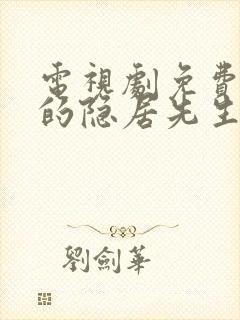 電視劇免費
的隐居先生
劉劍華